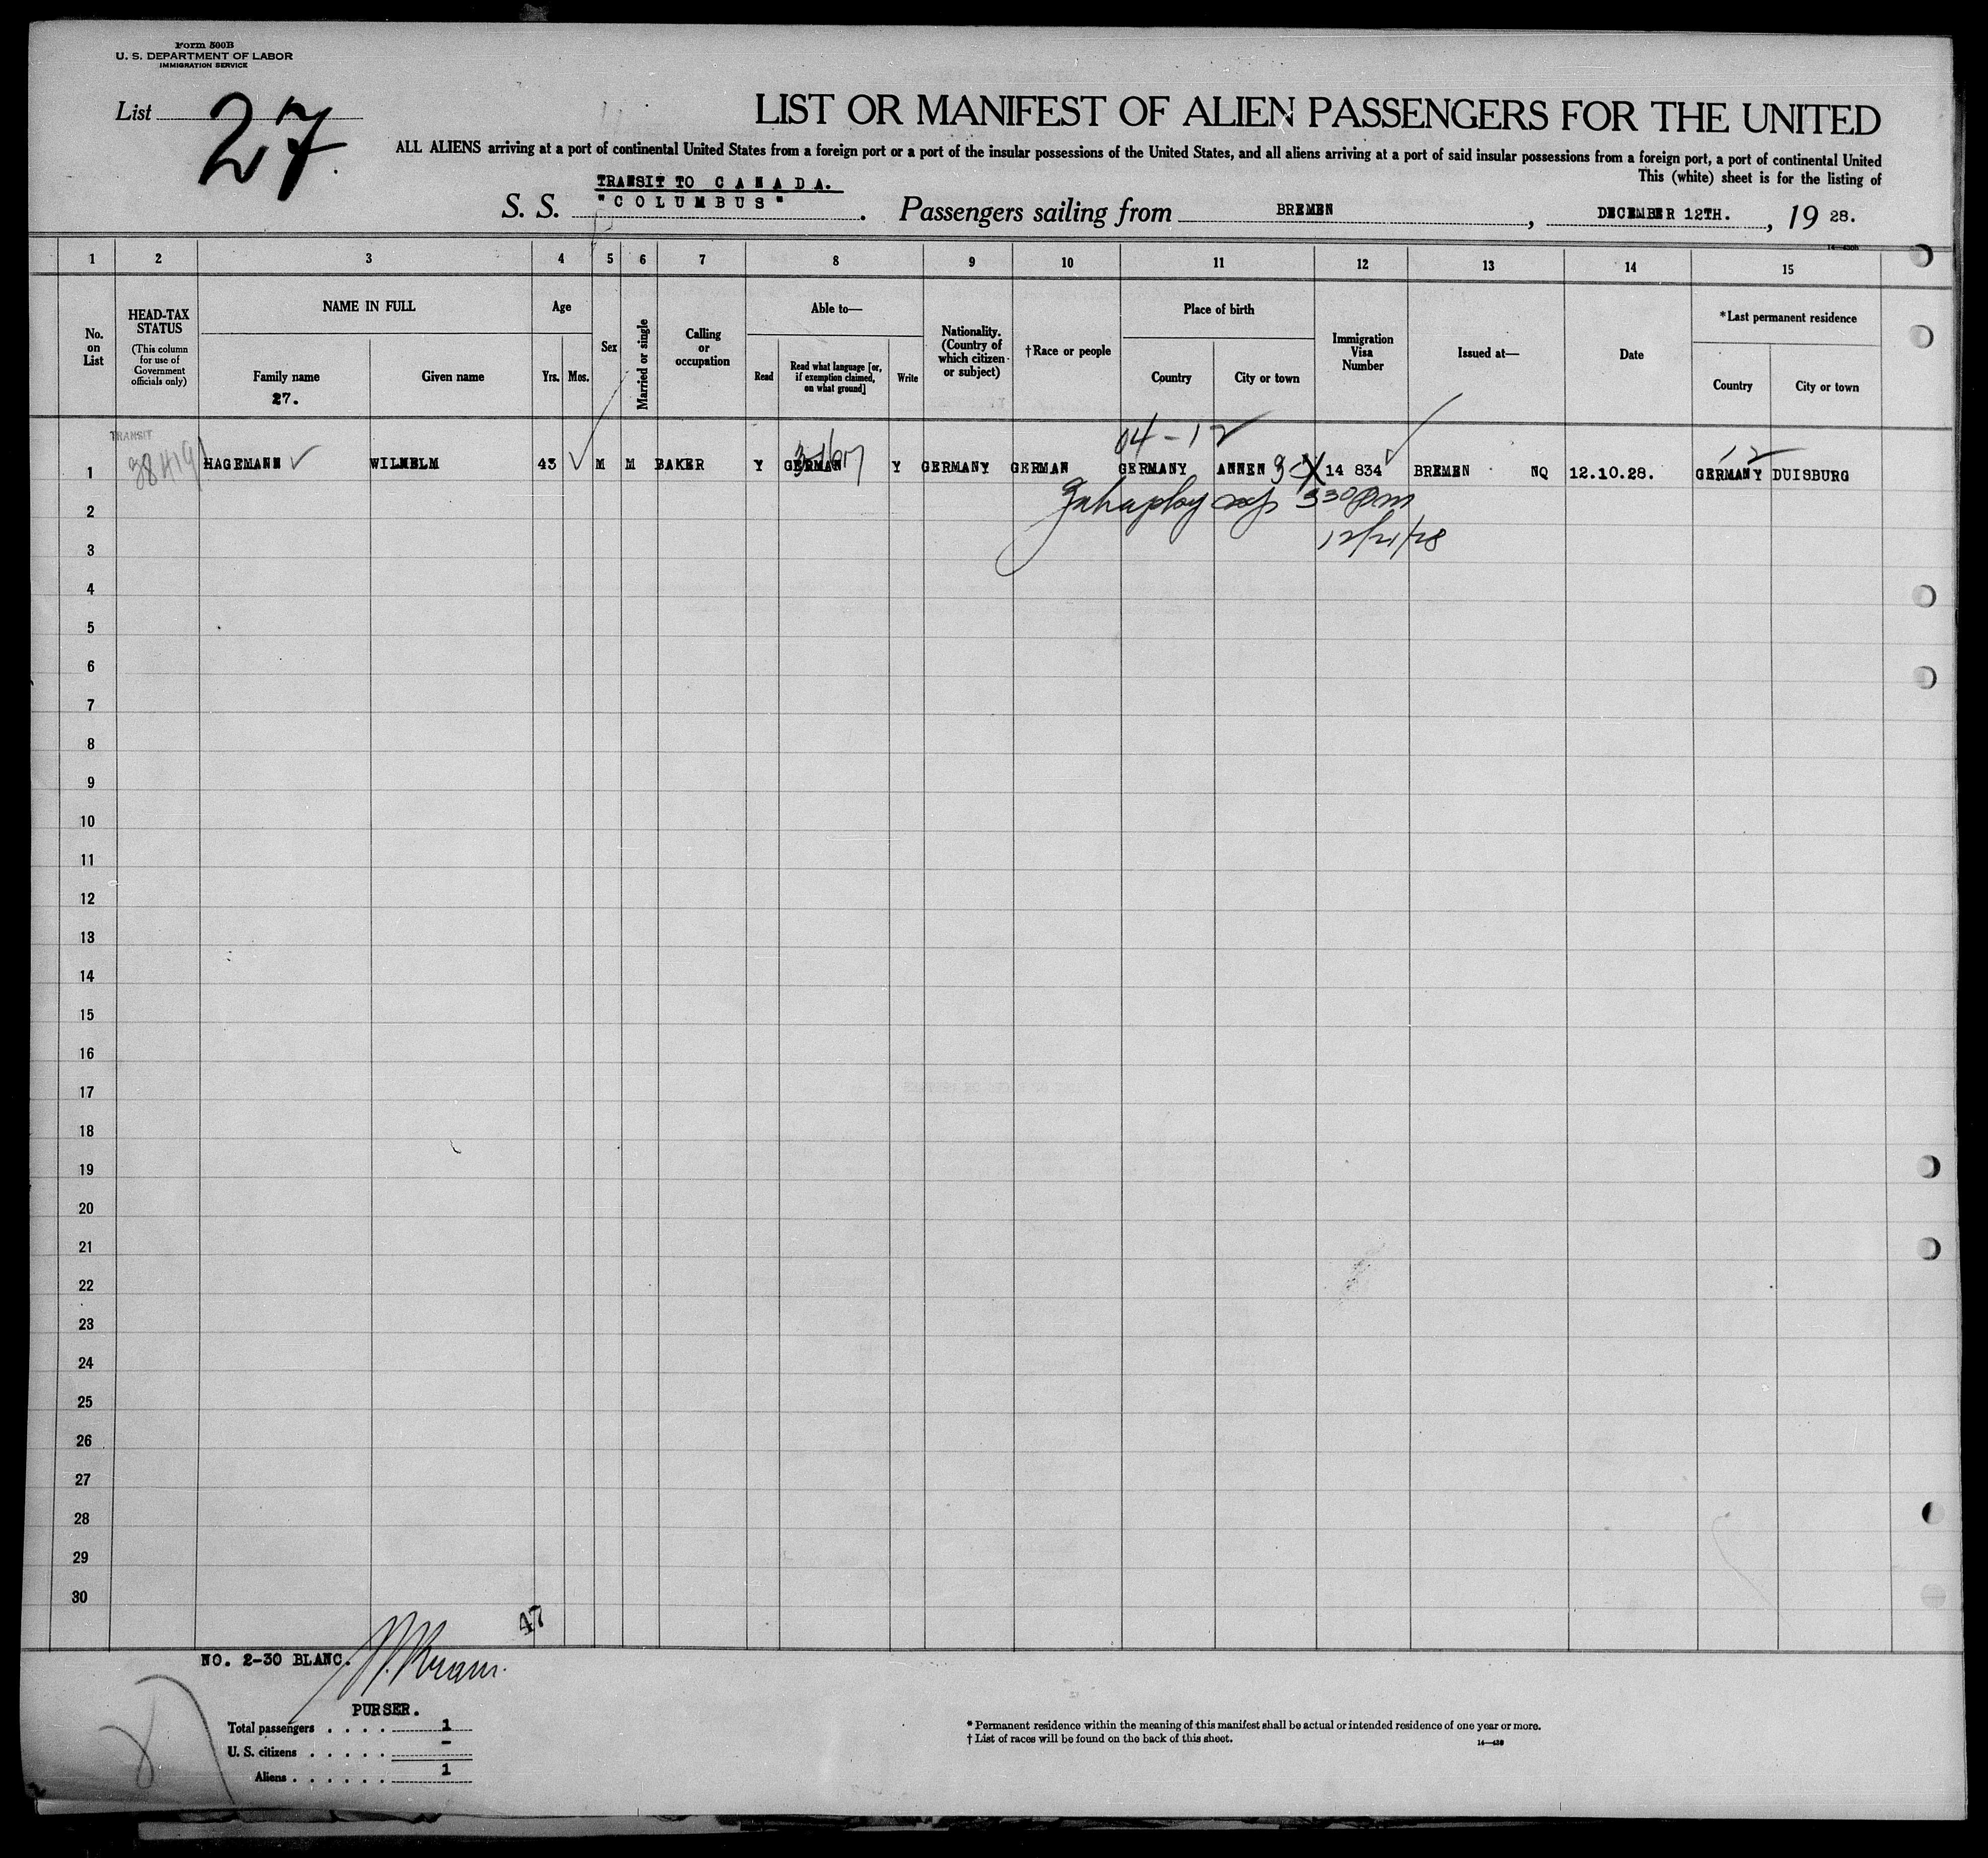 Form 500B
U. S. DEPARTMENT OF LABOR
IMMIGRATION SERVICE
List 27
LIST OR MANIFEST OF ALIEN PASSENGERS FOR THE UNITED
ALL ALIENS arriving at a port of continental United States from a foreign port or a port of the insular possessions of the United States, and all aliens arriving at a port of said insular possessions from a foreign port, a port of continental United
This (white) sheet is for the listing of
TRANSIT TO CANADA.
S. S. "COLUMBUS". Passengers sailing from BREMEN, DECEMBER 12TH., 19 28.
1 2 3 4 5 6 7 8 9 10 11 12 13 14 15
No. on List
HEAD-TAX STATUS
(This column for use of Government officials only)
NAME IN FULL
Family name
27.
Given name
Age
Yrs. Mos.
Sex
Married or single
Calling or occupation
Able to—
Read
Read what language [or, if exemption claimed, on what ground]
Write
Nationality. (Country of which citizen or subject)
†Race or people
Place of birth
Country
City or town
Immigration Visa Number
Issued at—
Date
*Last permanent residence
Country
City or town
TRANSIT
04-12
1 HAGEMANN WILHELM 43 M M BAKER Y GERMAN Y GERMANY GERMAN GERMANY ANNEN 14 834 BREMEN NQ 12.10.28. GERMANY DUISBURG
2 330 pm
3 12/21/28
4
5
6
7
8
9
10
11
12
13
14
15
16
17
18
19
20
21
22
23
24
25
26
27
28
29
30
47
NO. 2-30 BLANC.
PURSER.
Total passengers . . . . 1
U. S. citizens . . . . . -
Aliens . . . . . . 1
* Permanent residence within the meaning of this manifest shall be actual or intended residence of one year or more.
† List of races will be found on the back of this sheet.